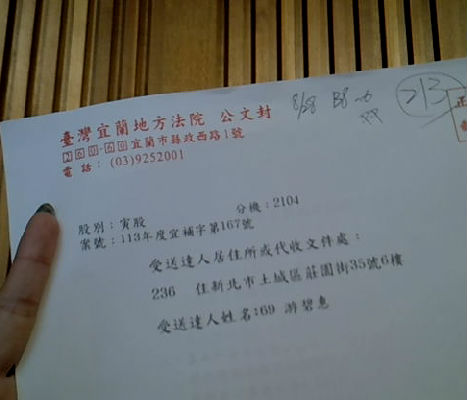 臺灣宜蘭地方法院 公文封
260-60宜蘭市縣政西路1號
電話：(03)9252001
213
正
股別：寅股
分機：2104
案號：113年度宜補字第167號
受送達人居住所或代收文件處：
236 住新北市土城區莊園街35號6樓
受送達人姓名:69 游碧惠